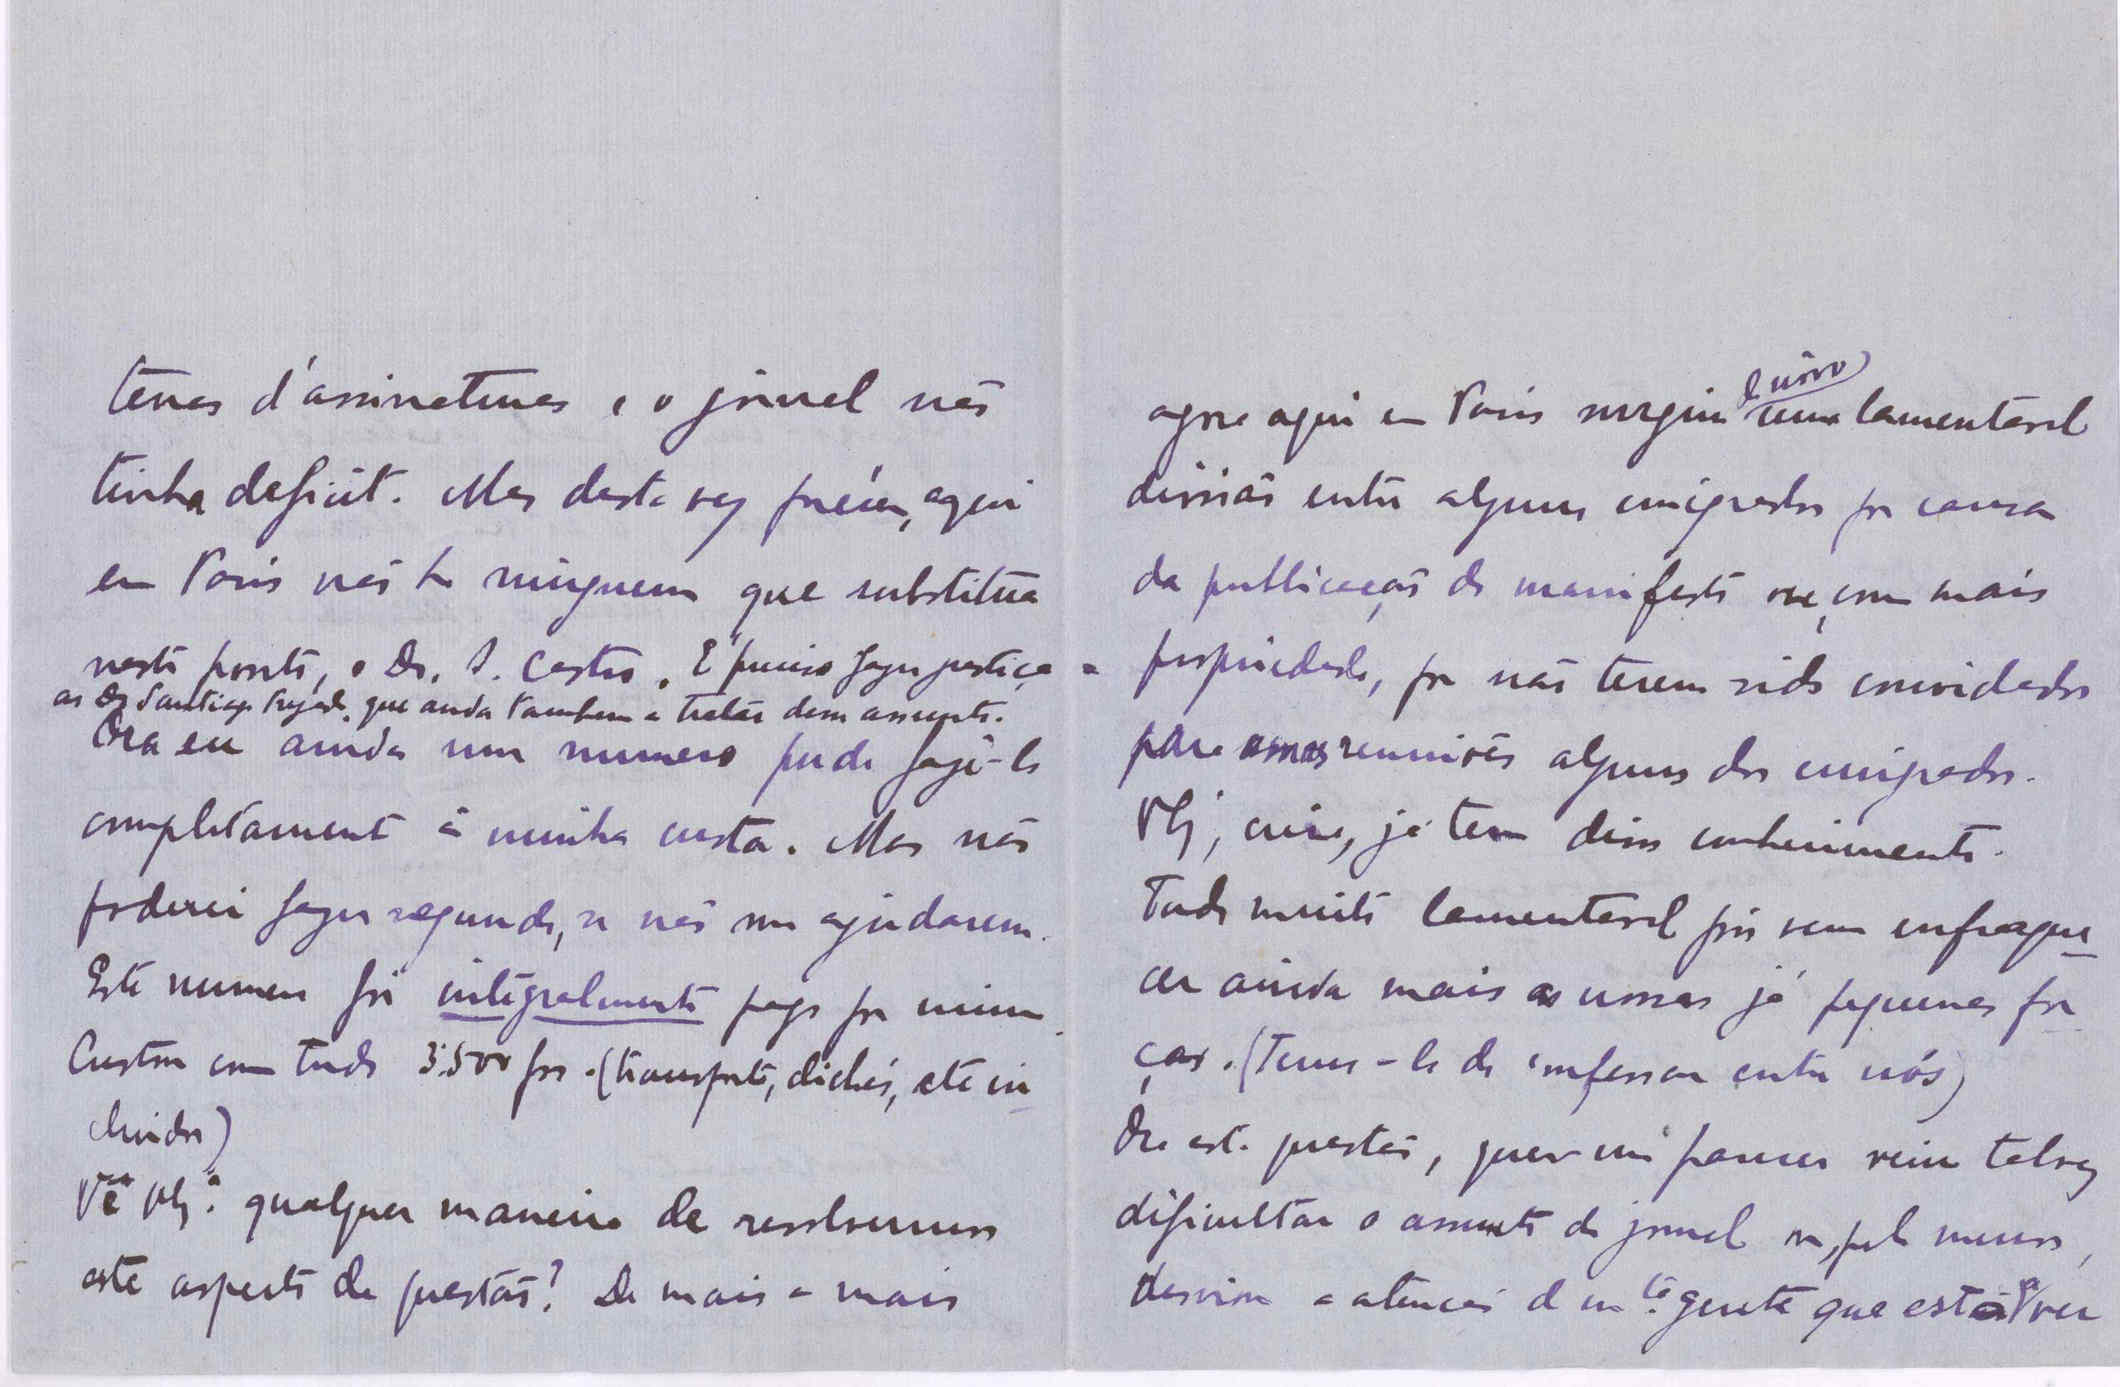 tenas d'assinaturas e o jornal não
tinha deficit. Mas desta vez porém, aqui
em Paris não ha ninguem que substitua
neste ponto, o Dr. A. Castro. É preciso fazer justiça
ao Dr Santiago Prezado, que anda tambem a tratar dum assunto.
Ora eu ainda um numero pude fazê-lo
completamente á minha custa. Mas não
poderei fazer segundo, se não me ajudarem.
Este numero foi integralmente pago por mim.
Custou com tudo 3.500 frs. (transporte, clichés, etc in-
cluidos)
Vê V. Ex.ª qualquer maneira de resolvermos
este aspecto da questão? De mais a mais
agora aqui em Paris surgiu de novo uma lamentavel
divisão entre alguns emigrados por causa
da publicação do manifesto ou, com mais
propriedade, por não terem sido convidados
para essas reuniões alguns dos emigrados.
V. Ex.ª, creio, já tem disso conhecimento.
Tudo muito lamentavel pois vem enfraque-
cer ainda mais as nossas já pequenas for-
ças. (Temos-lo de confessar entre nós)
Ora esta questão, quer-me parecer veiu talvez
dificultar o assunto do jornal ou, pelo menos,
desviou a atenção d m.ta gente que está a ver